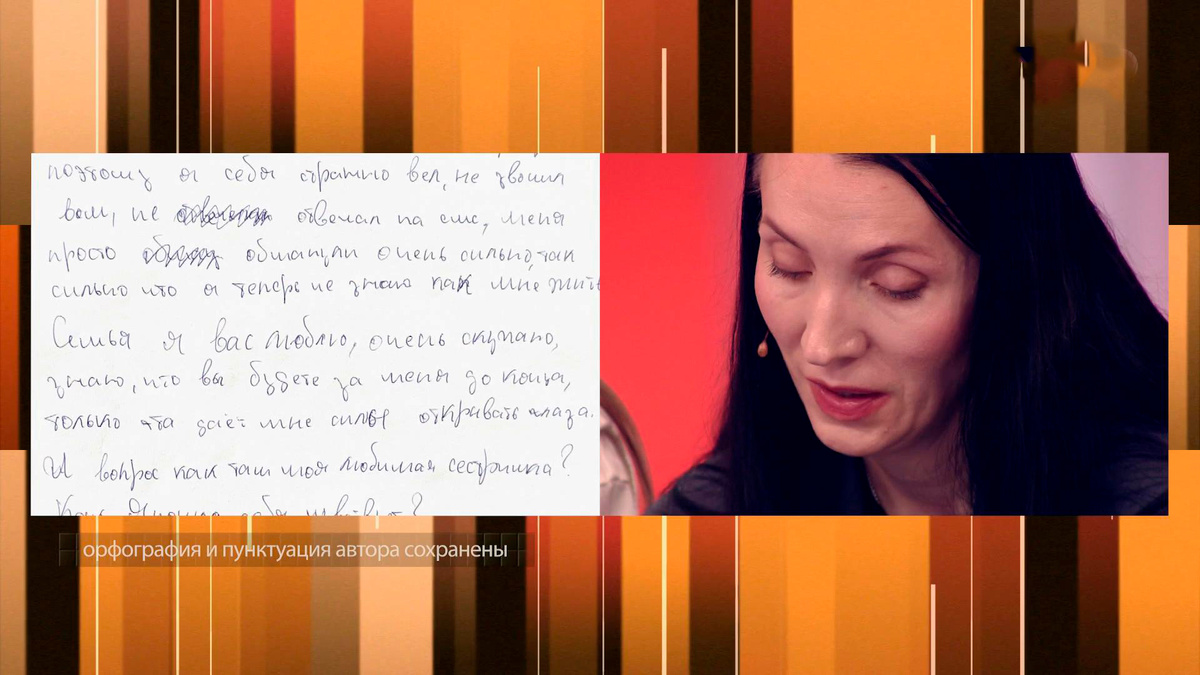 поэтому я себя странно вел, не звонил
вам, не отвечал на смс, меня
просто обманули очень сильно, так
сильно что я теперь не знаю как мне жить
Семья я вас люблю, очень скучаю,
знаю, что вы будете за меня до конца,
только эта даёт мне силы открывать глаза.
И вопрос как там моя любимая сестричка?
Как себя чувствует?
орфография и пунктуация автора сохранены